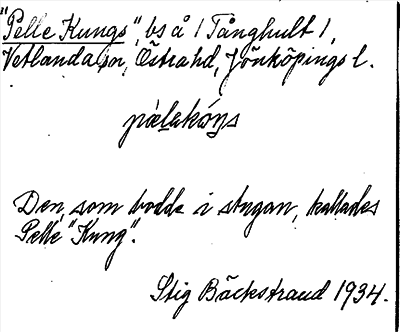 "Pelle Kungs", bs å / Tånghult /,
Vetlanda sn, Östra hd, Jönköpings l.
pælakóŋs
Den, som bodde i stugan, kallades
Pelle "Kung".
Stig Bäckstrand 1934.